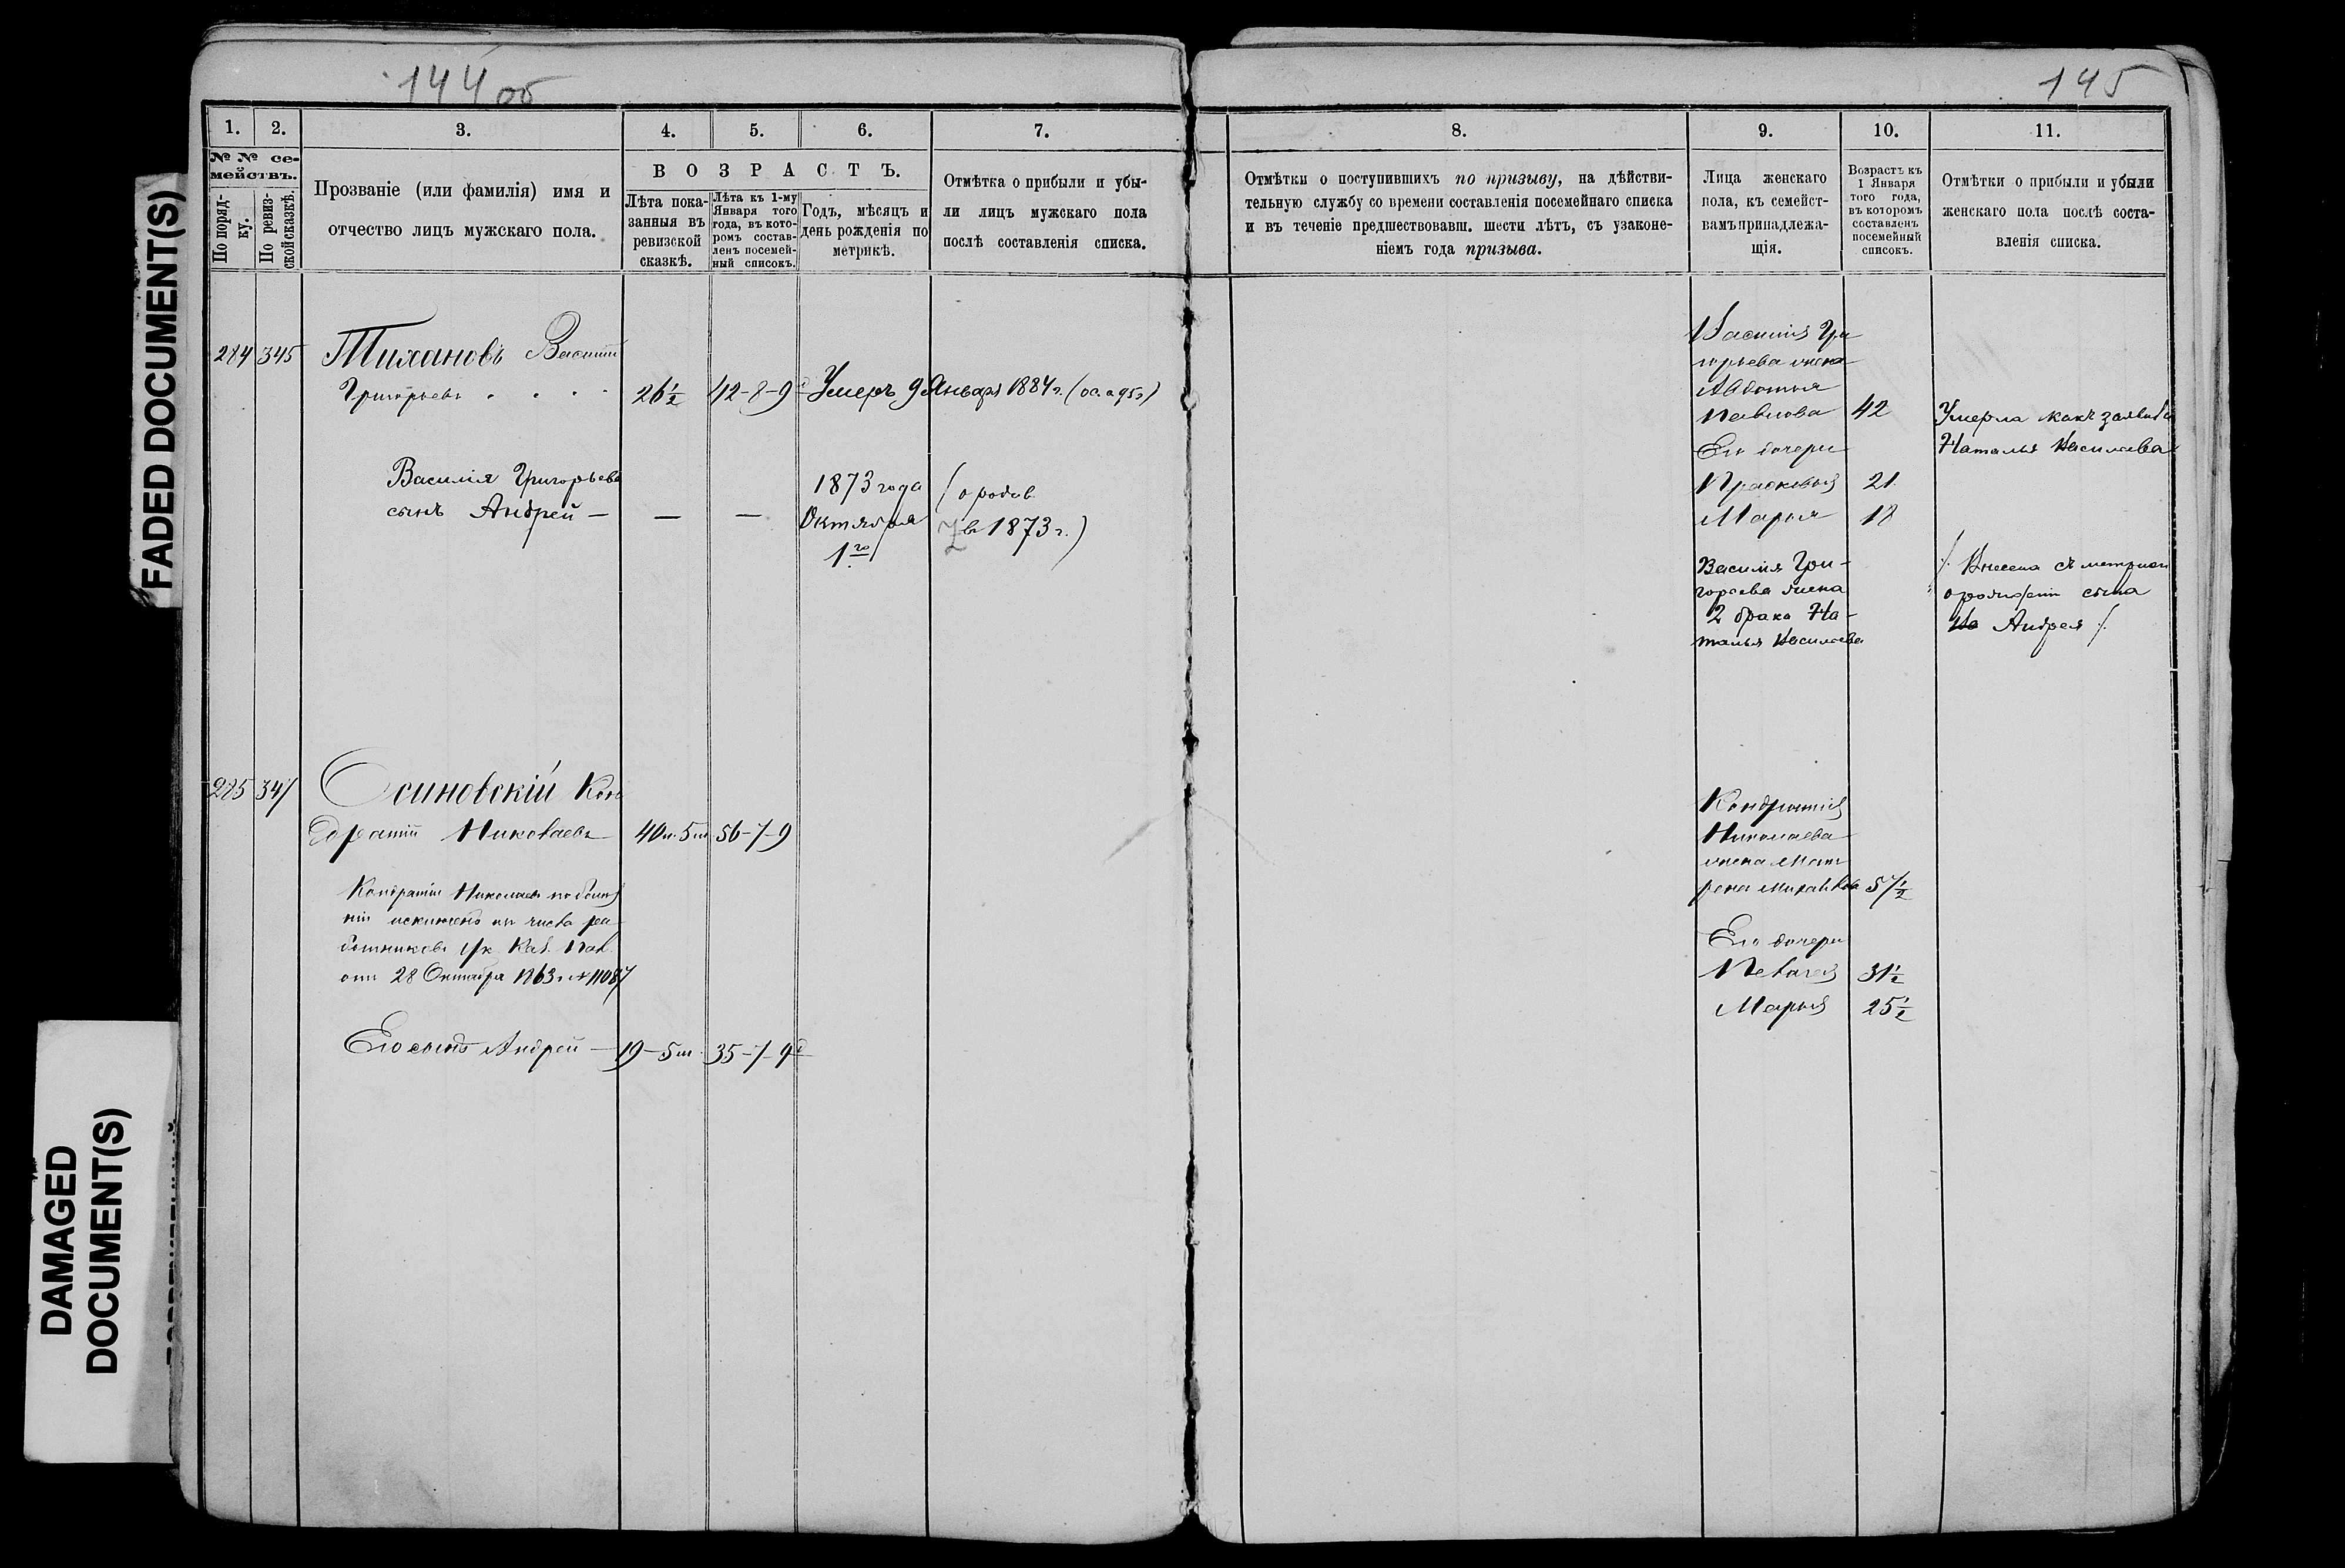 144 об
145
FADED DOCUMENT(S)
DAMAGED
DOCUMENT(S)
1.
2.
3.
4.
5.
6.
7.
№№ се-
мействъ.
По поряд-
ку.
По ревиз-
ской сказкѣ.
Прозваніе (или фамилія) имя и
отчество лицъ мужскаго пола.
ВОЗРАСТЪ.
Лѣта пока-
занныя въ
ревизской
сказкѣ.
Лѣта къ 1-му
Января того
года, въ кото-
ромъ состав-
ленъ посемей-
ный списокъ.
Годъ, мѣсяцъ и
день рожденія по
метрикѣ.
Отмѣтка о прибыли и убы-
ли лицъ мужскаго пола
послѣ составленія списка.
284 345 Тихановъ Василій
Григорьевъ 26½ 42-8-9 Умеръ 9 Января 1884 г.
Василія Григорьева
сынъ Андрей — — —
1873 года
Октября
1го
(о родив.
въ 1873 г.)
285 347 Осиновскій Кон
дратій Николаевъ 40 л. 5 м 56-7-9
Кондратій Николаевъ по
исключенъ изъ числа ра
ботниковъ Ук. Каз. Пал.
отъ 28 Октября 1863 г. № 11087
Его сынъ Андрей — 19-5 м. 35-7-9 д
8.
9.
10.
11.
Отмѣтки о поступившихъ по призыву, на дѣйстви-
тельную службу со времени составленія посемейнаго списка
и въ теченіе предшествовавш. шести лѣтъ, съ узаконе-
ніемъ года призыва.
Лица женскаго
пола, къ семейст-
вамъ принадлежа-
щія.
Возрастъ къ
1 Января
того года,
въ которомъ
составленъ
посемейный
списокъ.
Отмѣтки о прибыли и убыли
женскаго пола послѣ соста-
вленія списка.
Василія Гри
горьева жена
Авдотья
Павлова 42
Умерла какъ заявила
Наталья Васильева
Его дочери
Прасковья 21
Марья 18
Василія Гри-
горьева жена
2 брака На-
талья Васильева
/. Внесена съ метрики
о рожденіи сына
Андрея /.
Кондратія
Николаева
жена Мат
рена Михайлова 57½
Его дочери
Пелагея 31½
Марья 25½